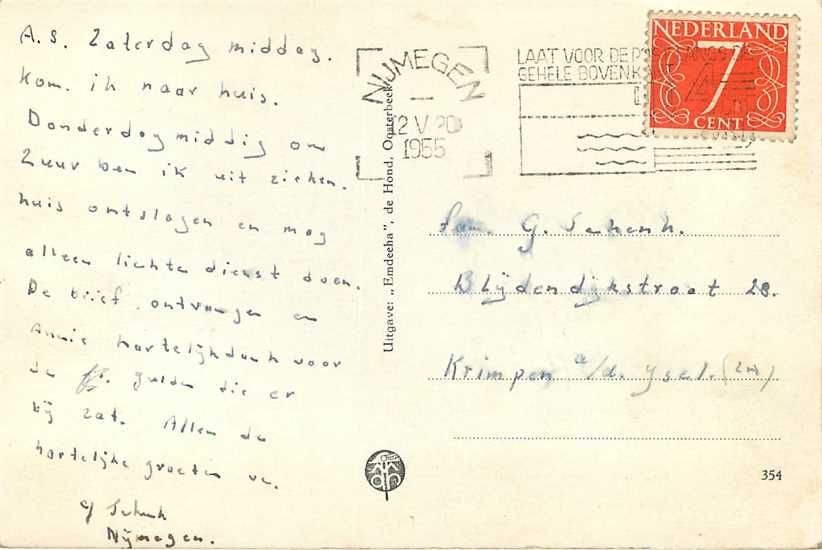 A.S. Zaterdag middag.
kom. ik naar huis.
Donderdag middig om
2 uur ben ik uit zieken.
huis ontslagen en mag
alleen lichte dienst doen.
De brief. ontvangen en
Annie hartelijkdank voor
de gulden die er
bij zat. Allen de
hartelijke groeten v.
G Schenk
Nijmegen.
Uitgave: „Emdeeha”, de Hond, Oosterbeek
NIJMEGEN
12 V 20
1955
LAAT VOOR DE
GEHELE BOVENK
NEDERLAND
7
CENT
Fam. G. Schenk.
Blijdendijkstraat 28.
Krimpen a/d. ysel. (ZH)
354